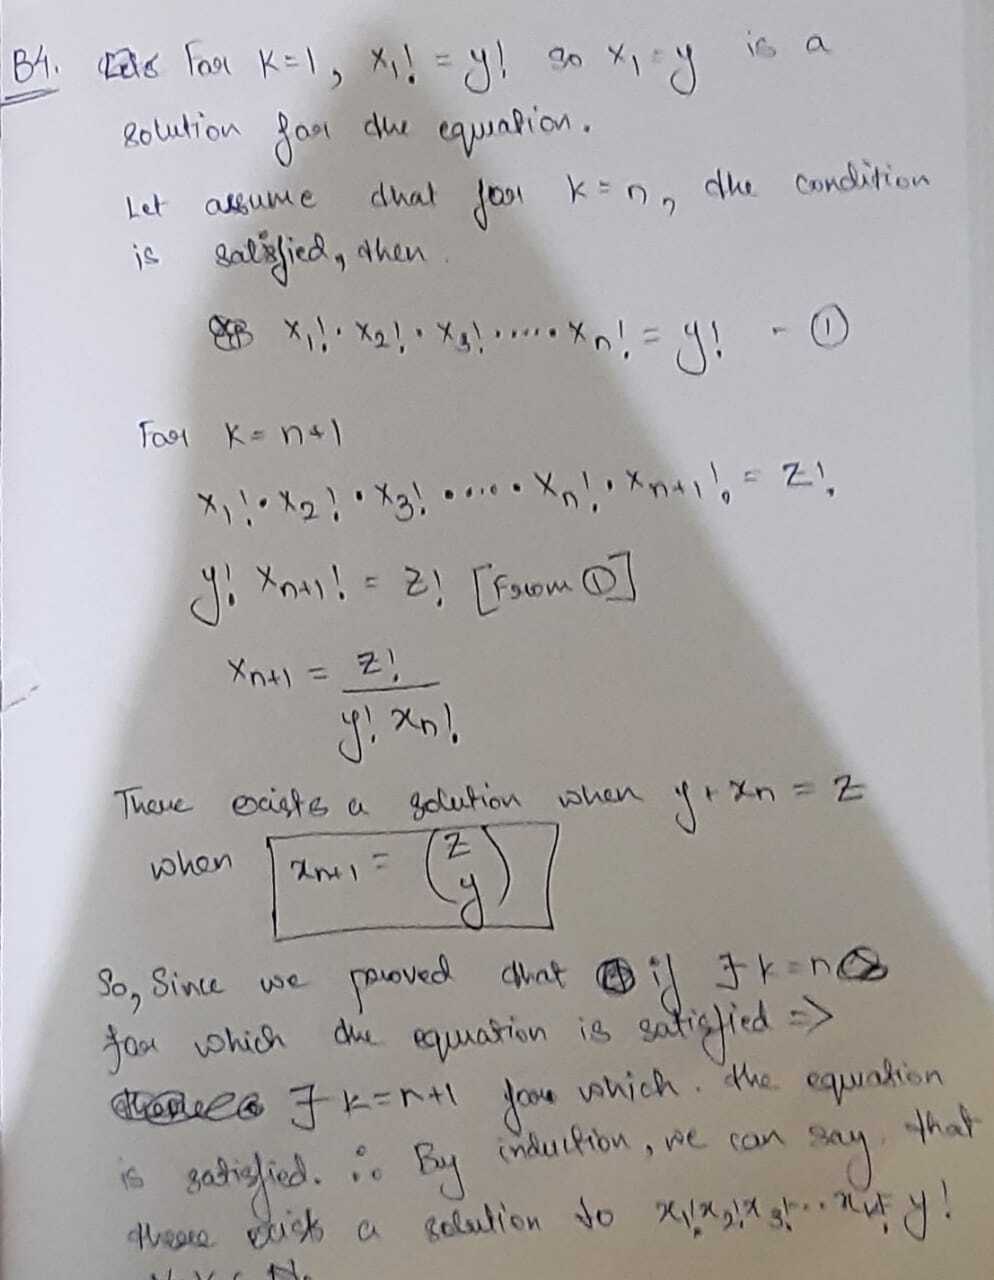 B4. For K=1, x₁! = y! so x₁ = y is a
solution for the equation.
Let assume that for K = n, the condition
is satisfied, then.
x₁! · x₂! · x₃! ..... xₙ! = y! - ①
For K = n+1
x₁! · x₂! · x₃! ..... xₙ! · xₙ₊₁! = z!
y! xₙ₊₁! = z! [From ①]
xₙ₊₁ = z! / y! xₙ!
There exists a solution when y + xₙ = z
when xₙ₊₁ = (z y)
So, Since we proved that if ∃ k = n
for which the equation is satisfied =>
∃ k = n+1 for which the equation
is satisfied. ∴ By induction, we can say that
there exists a solution to x₁! x₂! x₃! ... y!